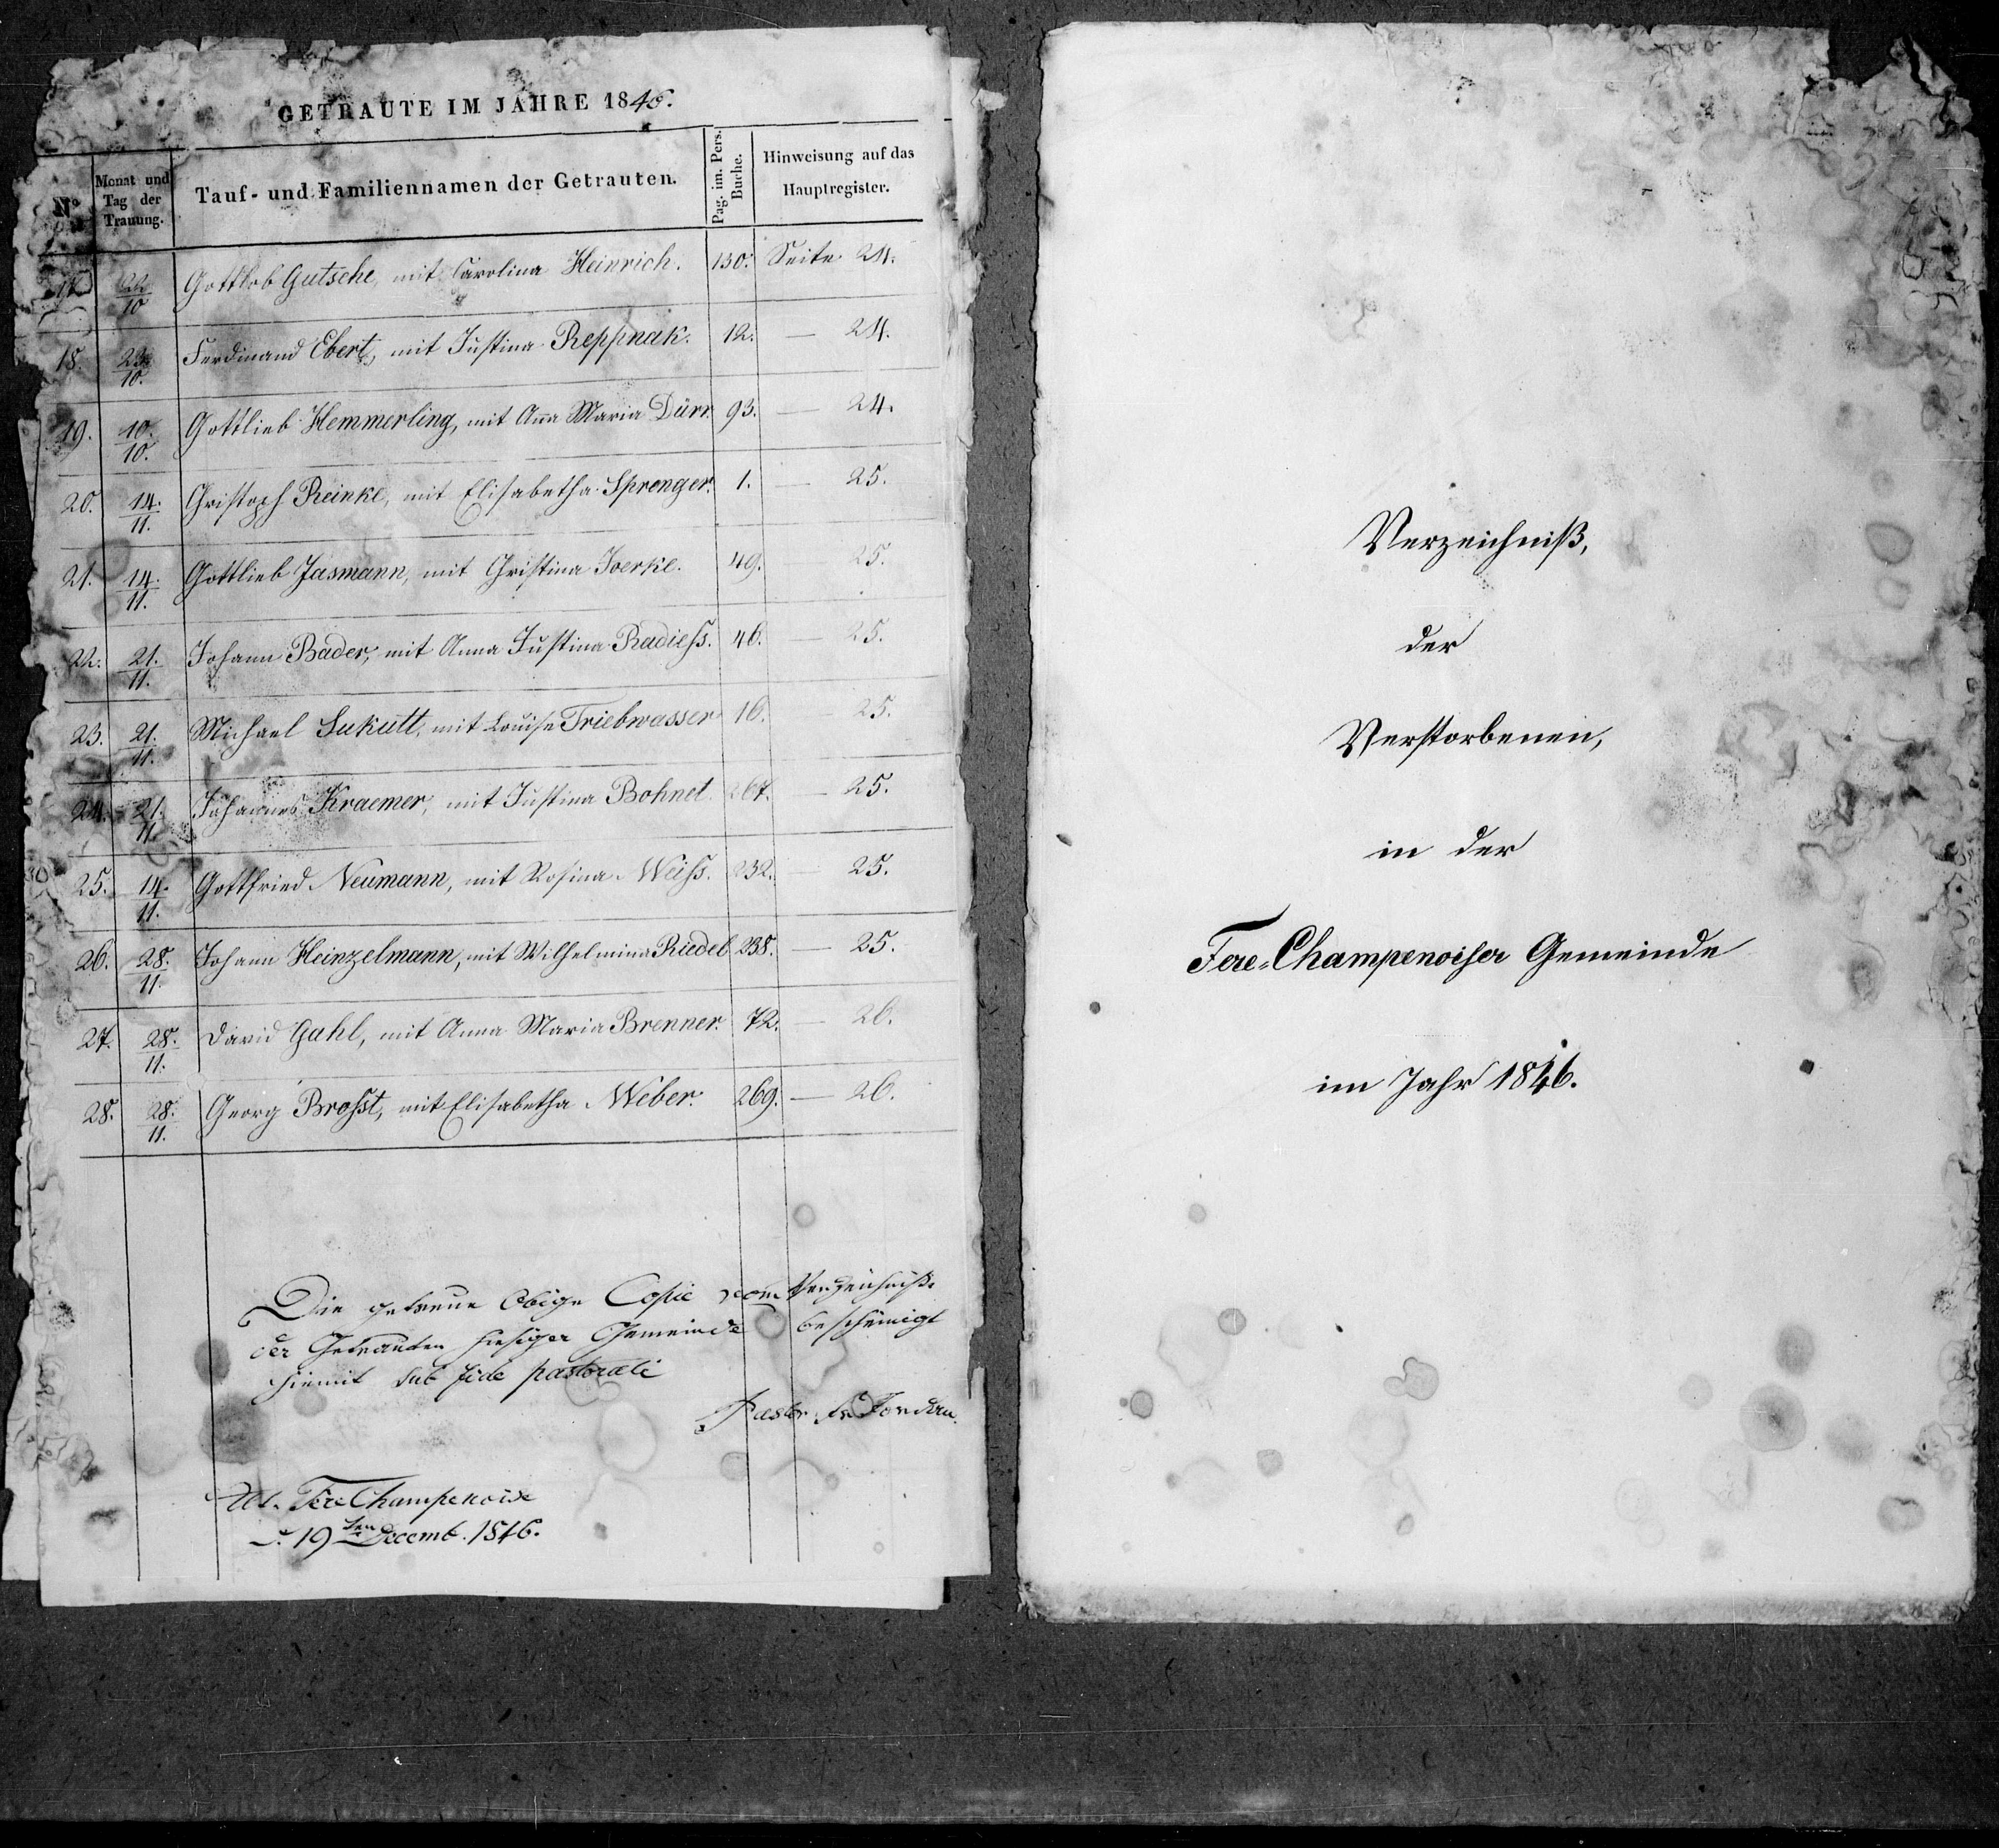 GETRAUTE IM JAHRE 1846.
No Monat und Tag der Trauung. Tauf- und Familiennamen der Getrauten. Pag. im. Pers. Buche. Hinweisung auf das Hauptregister.
17. 22/10 Gottlob Gutsche, mit Carolina Heinrich. 130. Seite 24.
18. 23./10. Ferdinand Ebert, mit Justina Reppnak. 12. — 24.
19. 10./10. Gottlieb Hemmerling, mit Ana Maria Dürr. 93. — 24.
20. 14./11. Christoph Reinke, mit Elisabetha Sprenger. 1. — 25.
21. 14./11. Gottlieb Jasmann, mit Christina Joerke. 49. 25.
22. 21./11. Johann Bader, mit Anna Justina Radiess. 46. — 25.
23. 21./11. Michael Sukutt, mit Louise Triebwasser 16. — 25.
24. 21./11. Johannes Kraemer, mit Justina Bohnet. 267. — 25.
25. 14./11. Gottfried Neumann, mit Rosina Weiss. 232. — 25.
26. 28./11. Johann Heinzelmann, mit Wilhelmina Riedel 238. — 25.
27. 28./11. David Gahl, mit Anna Maria Brenner. 72. — 26.
28. 28./11. Georg Brosst, mit Elisabetha Weber. 269. — 26.
Die getreue Obige Copie vom Verzeichniße
der Getrauten hiesiger Gemeinde bescheinigt
hiemit sub fide pastorali
Pastor
Alt. Fère Champenoise
d. 19ten Decemb. 1846.
Verzeichniß,
der
Verstorbenen,
in der
Fere-Champenoiser Gemeinde
im Jahr 1846.